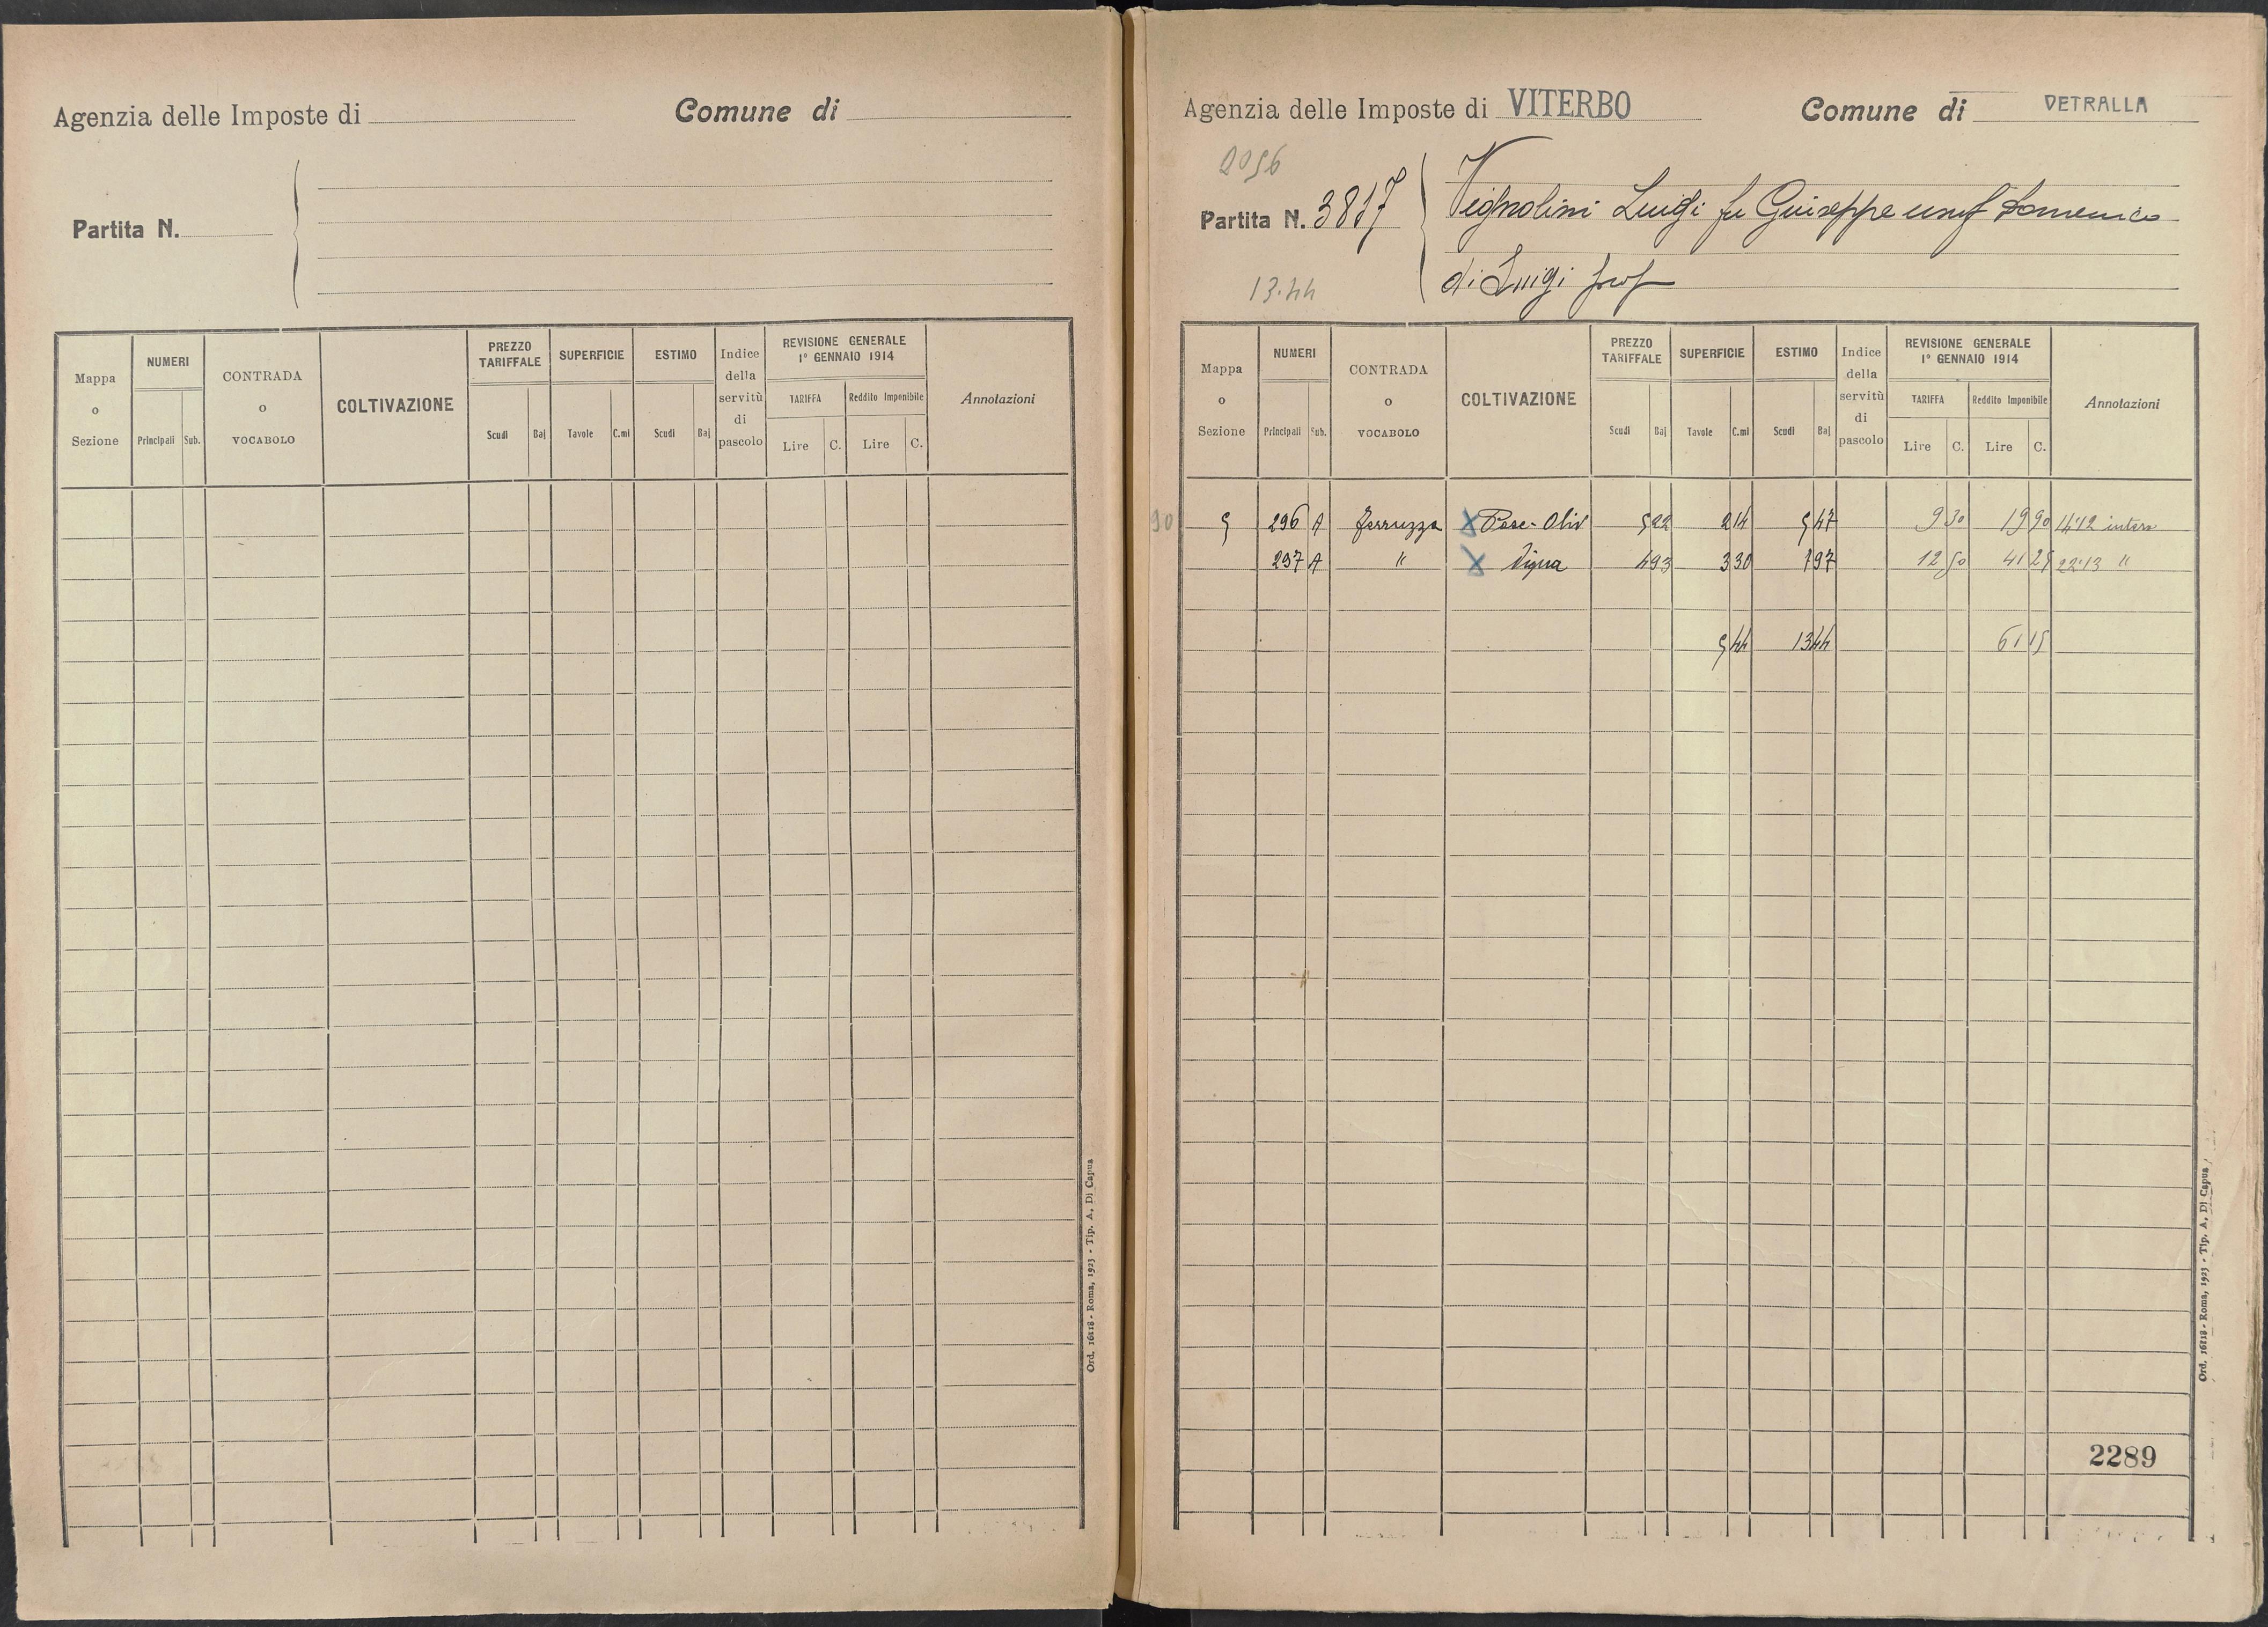 Agenzia delle Imposte di
Comune di
Partita N.
Mappa o Sezione
NUMERI
Principali Sub.
CONTRADA o VOCABOLO
COLTIVAZIONE
PREZZO TARIFFALE
Scudi Baj
SUPERFICIE
Tavole C.mi
ESTIMO
Scudi Baj
Indice della servitù di pascolo
REVISIONE GENERALE 1° GENNAIO 1914
TARIFFA Reddito Imponibile
Lire C. Lire C.
Annotazioni
Ord. 16118 - Roma, 1923 - Tip. A. Di Capua
Agenzia delle Imposte di VITERBO
Comune di VETRALLA
2056
Partita N. 3817
Vignolini Luigi fu Giuseppe usuf Domenico
di Luigi prop
13.44
Mappa o Sezione
NUMERI
Principali Sub.
CONTRADA o VOCABOLO
COLTIVAZIONE
PREZZO TARIFFALE
Scudi Baj
SUPERFICIE
Tavole C.mi
ESTIMO
Scudi Baj
Indice della servitù di pascolo
REVISIONE GENERALE 1° GENNAIO 1914
TARIFFA Reddito Imponibile
Lire C. Lire C.
Annotazioni
90 5 296 A Ferruzza X Pasc- Oliv 522 214 547 9 30 19 90 1412 intero
297 A " X Vigna 493 330 797 12 50 41 25 22.13 "
5 44 13 44 61 15
2289
Ord. 16118 - Roma, 1923 - Tip. A. Di Capua